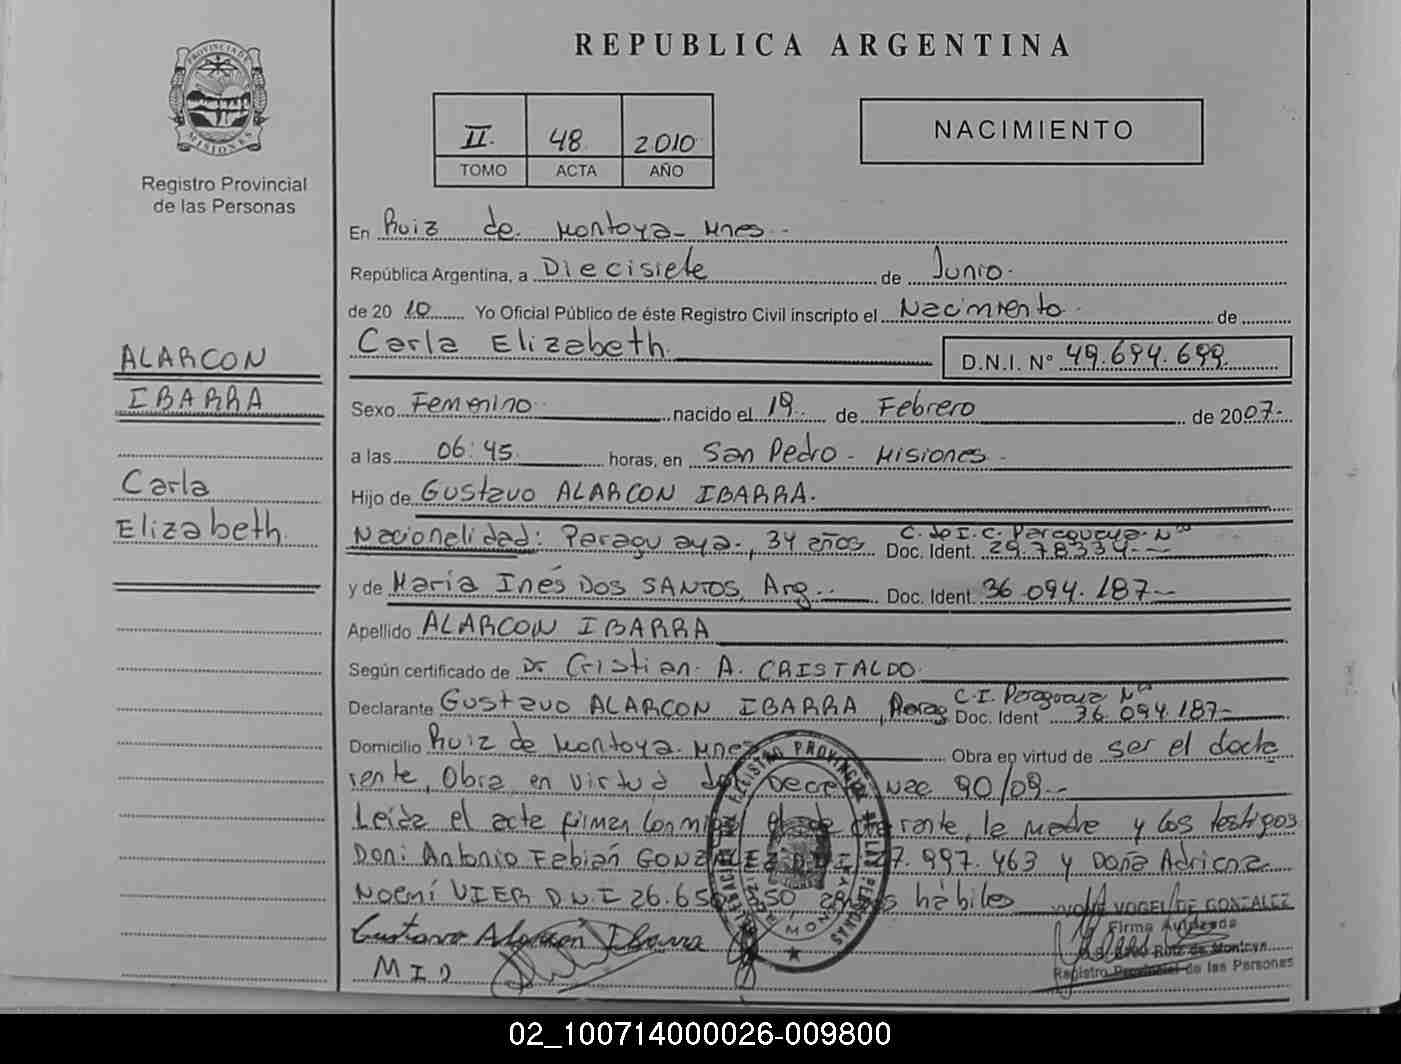 PROVINCIA DE
MISIONES
Registro Provincial
de las Personas
ALARCON
IBARRA
Carla
Elizabeth
REPUBLICA ARGENTINA
II. 48 2010
TOMO ACTA AÑO
NACIMIENTO
En Ruiz de Montoya - Mnes -
República Argentina, a Diecisiete de Junio.
de 20 10 Yo Oficial Público de éste Registro Civil inscripto el Nacimiento de
Carla Elizabeth. D.N.I. Nº 49.694.699
Sexo Femenino nacido el 19 de Febrero de 2007.-
a las 06:45 horas, en San Pedro - Misiones -
Hijo de Gustavo ALARCON IBARRA.
Nacionalidad: Paraguaya, 34 años C. de I. C. Paraguaya Nº
Doc. Ident. 29.78334.-
y de María Inés DOS SANTOS, Arg.- Doc. Ident. 36.094.187-
Apellido ALARCON IBARRA
Según certificado de Dr Cristian A. CRISTALDO.
Declarante Gustavo ALARCON IBARRA, Parag C.I. Paraguaya Nº
Doc. Ident 36.094.187-
Domicilio Ruiz de Montoya. Mnes Obra en virtud de ser el decla
rente, Obra en virtud del Decreto 90/09-
Leída el acta firman conmigo el declarante, la madre y los testigos
Don: Antonio Fabián GONZALEZ D.N.I 27.997.463 y Doña Adriana
Noemí VIER D.N.I 26.65 50 hábiles
YVONE VOGEL DE GONZALEZ
Gustavo Alarcón Ibarra
Firma Autorizada
Ruiz de Montoya
M I D
Registro Provincial de las Personas
REGISTRO PROVINCIAL DE LAS PERSONAS
02_100714000026-009800